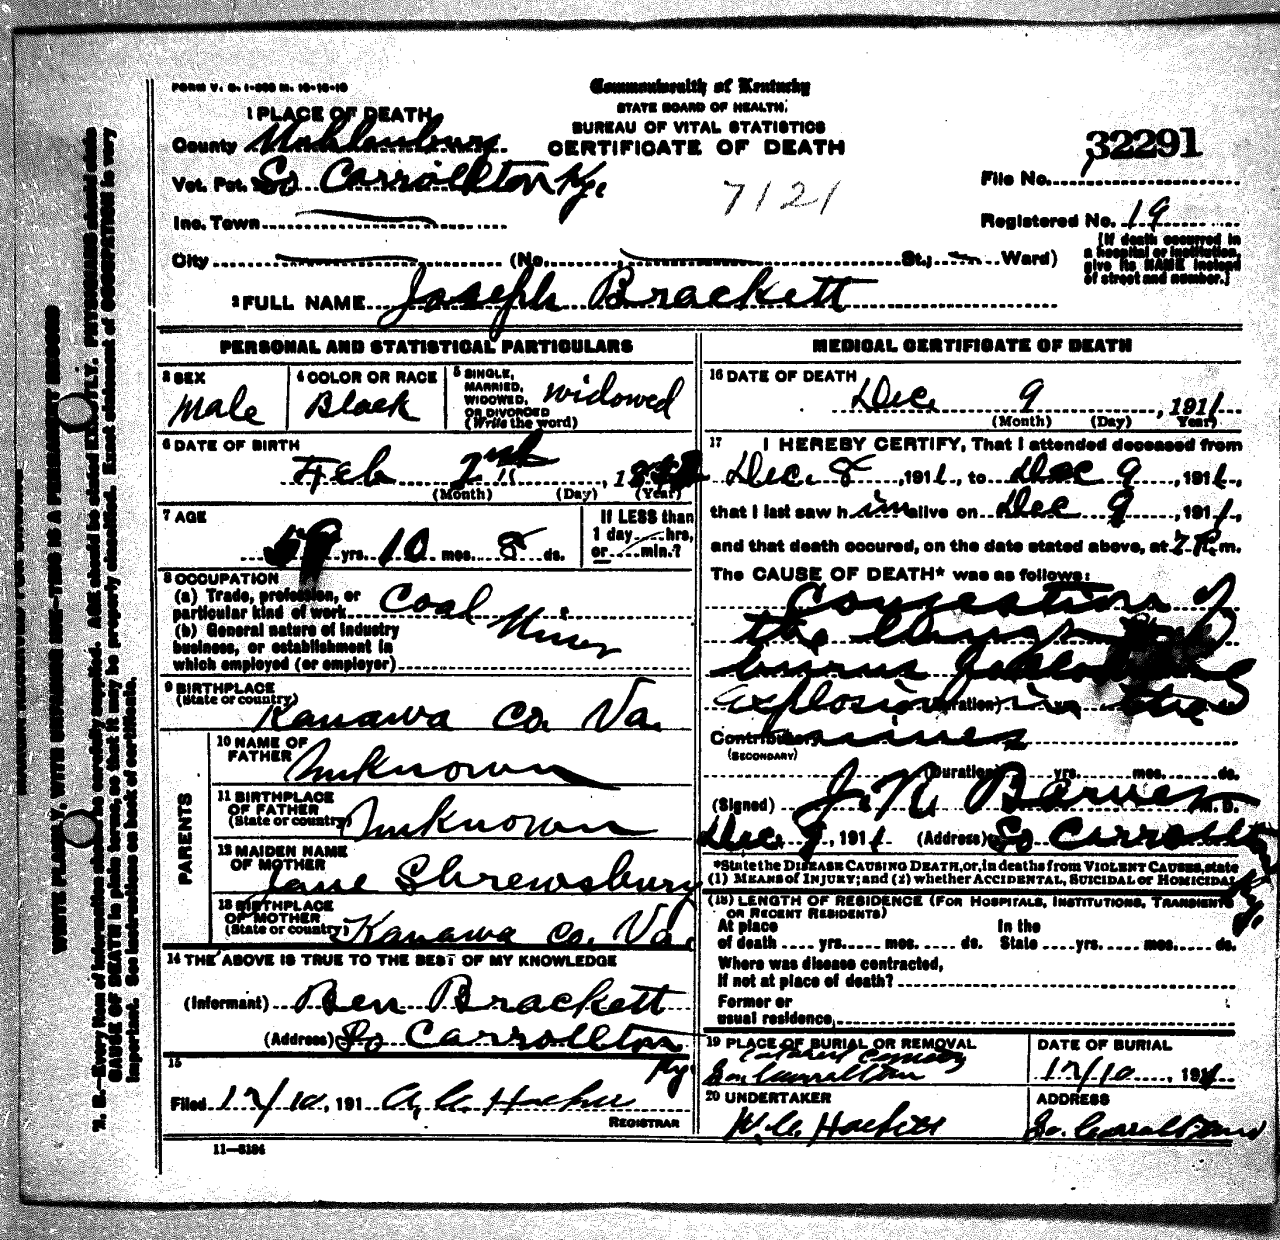 FORM V. S. 1-500 M. 10-18-10
Commonwealth of Kentucky
STATE BOARD OF HEALTH.
BUREAU OF VITAL STATISTICS
CERTIFICATE OF DEATH
1 PLACE OF DEATH
County Muhlenburg
Vot. Pct. So Carrollton Ky.
Inc. Town
City (No. St.; Ward)
7121
32291
File No.
Registered No. 19
[If death occurred in a hospital or institution, give its NAME instead of street and number.]
2 FULL NAME Joseph Brackett
PERSONAL AND STATISTICAL PARTICULARS
3 SEX
Male
4 COLOR OR RACE
Black
5 SINGLE, MARRIED, WIDOWED, OR DIVORCED (Write the word)
Widowed
6 DATE OF BIRTH
Feb 2nd, 18
(Month) (Day) (Year)
7 AGE
59 yrs. 10 mos. 8 ds.
If LESS than 1 day hrs, or min.?
8 OCCUPATION
(a) Trade, profession, or particular kind of work Coal Miner
(b) General nature of industry business, or establishment in which employed (or employer)
9 BIRTHPLACE
(State or country)
Kanawa Co. Va.
PARENTS
10 NAME OF FATHER
Unknown
11 BIRTHPLACE OF FATHER
(State or country)
Unknown
12 MAIDEN NAME OF MOTHER
Jane Shrewsbury
13 BIRTHPLACE OF MOTHER
(State or country)
Kanawa Co. Va.
14 THE ABOVE IS TRUE TO THE BEST OF MY KNOWLEDGE
(Informant) Ben Brackett
(Address) So Carrollton Ky.
15
Filed 12/10, 191
REGISTRAR
11—5184
MEDICAL CERTIFICATE OF DEATH
16 DATE OF DEATH
Dec 9, 1911
(Month) (Day) (Year)
17 I HEREBY CERTIFY, That I attended deceased from
Dec. 8, 1911, to Dec 9, 1911,
that I last saw him alive on Dec 9, 1911,
and that death occured, on the date stated above, at 2 P. m.
The CAUSE OF DEATH* was as follows:
Congestion of
the lungs
burns
explosion in the
(Duration)
mines
Contributory
(SECONDARY)
(Duration) yrs. mos. ds.
(Signed) J. N. Barnes M. D.
Dec 9, 1911 (Address) So Carrollton Ky.
*State the DISEASE CAUSING DEATH, or, in deaths from VIOLENT CAUSES, state
(1) MEANS of INJURY; and (2) whether ACCIDENTAL, SUICIDAL or HOMICIDAL
(18) LENGTH OF RESIDENCE (FOR HOSPITALS, INSTITUTIONS, TRANSIENTS OR RECENT RESIDENTS)
At place of death yrs. mos. ds. In the State yrs. mos. ds.
Where was disease contracted,
If not at place of death?
Former or usual residence,
19 PLACE OF BURIAL OR REMOVAL
So. Carrollton
DATE OF BURIAL
12/10, 1911
20 UNDERTAKER
ADDRESS
So. Carrollton
MARGIN RESERVED FOR BINDING
WRITE PLAINLY, WITH UNFADING INK—THIS IS A PERMANENT RECORD
N. B.—Every item of information should be carefully supplied. AGE should be stated EXACTLY. PHYSICIANS should state
CAUSE OF DEATH in plain terms, so that it may be properly classified. Exact statement of OCCUPATION is very
important. See instructions on back of certificate.